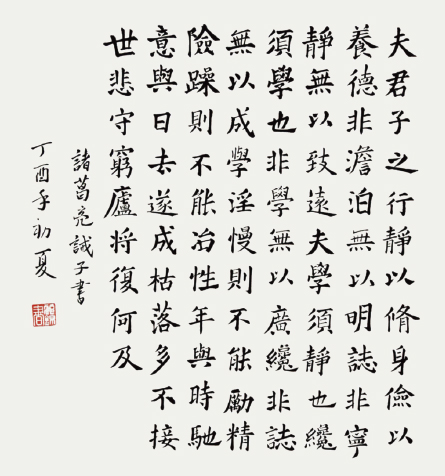 夫君子之行靜以脩身儉以
養德非澹泊無以明誌非寧
靜無以致遠夫學須靜也纔
須學也非學無以廣纔非誌
無以成學淫慢則不能勵精
險躁則不能冶性年與時馳
意與日去遂成枯落多不接
世悲守窮廬將復何及
諸葛亮誡子書
丁酉年初夏